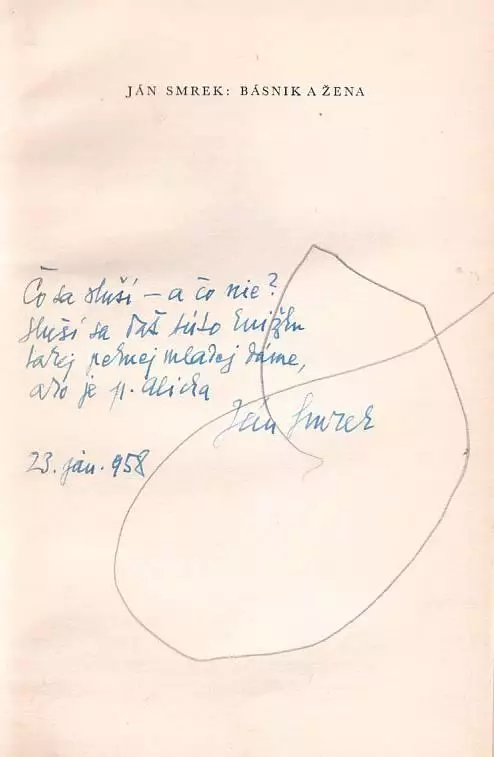 JÁN SMREK: BÁSNIK A ŽENA
Čo sa sluší – a čo nie?
Sluší sa dať túto knižku
takej peknej mladej dáme,
ako je p. Alicka
Ján Smrek
23. jan. 958